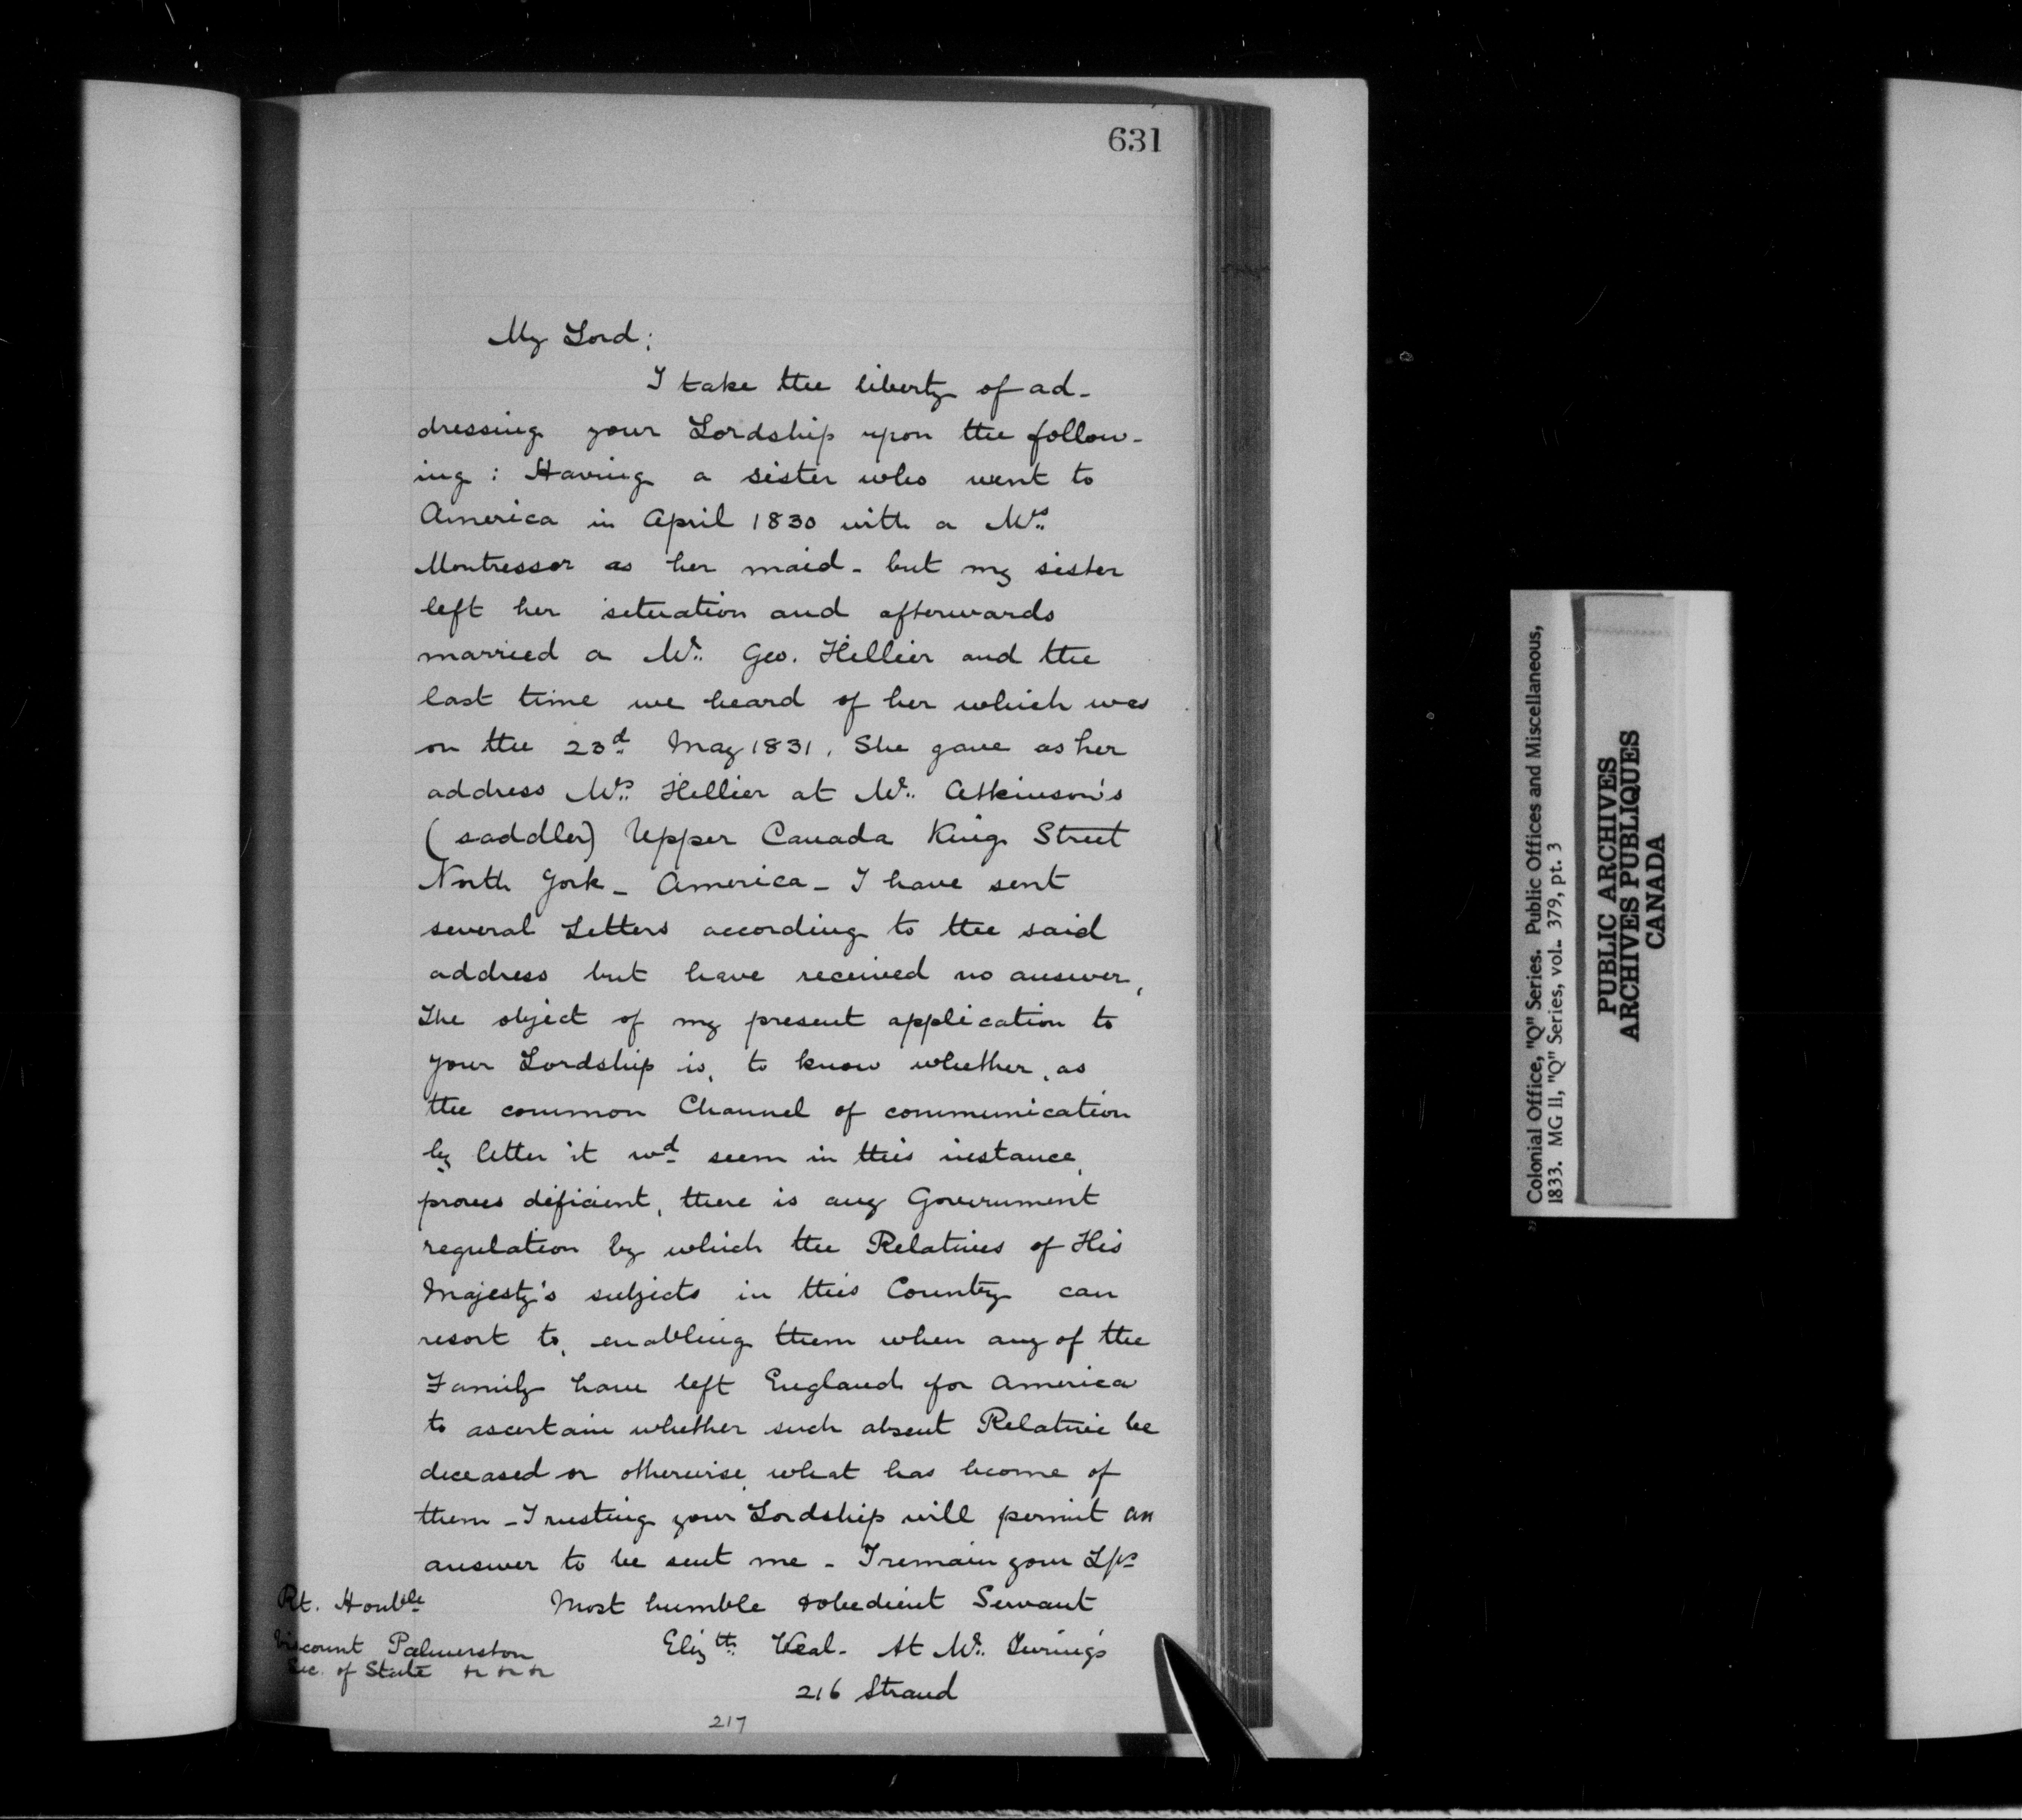 631
My Lord;
I take the liberty of ad-
dressing your Lordship upon the follow-
ing : Having a sister who went to
America in April 1830 with a Mrs.
Montressor as her maid - but my sister
left her situation and afterwards
married a Mr. Geo. Hellier and the
last time we heard of her which was
on the 23d May 1831, She gave as her
address Mrs. Hellier at Mr. Atkinson's
(saddler) Upper Canada King Street
North York - America - I have sent
several Letters according to the said
address but have received no answer,
The object of my present application to
your Lordship is, to know whether, as
the common Channel of communication
by letter it wd seem in this instance,
proves deficient, there is any Government
regulation by which the Relatives of His
Majesty's subjects in this Country can
resort to, enabling them when any of the
Family have left England for America
to ascertain whether such absent Relative be
deceased or otherwise, what has become of
them - Trusting your Lordship will permit an
answer to be sent me - I remain your Lps
Most humble & obedient Servant
Elizth. Veal - At Mr. Twining's
216 Strand
Rt. Honble
Viscount Palmerston
Sec. of State &c &c &c
217
Colonial Office, "Q" Series. Public Offices and Miscellaneous,
1833. MG 11, "Q" Series, vol. 379, pt. 3
PUBLIC ARCHIVES
ARCHIVES PUBLIQUES
CANADA